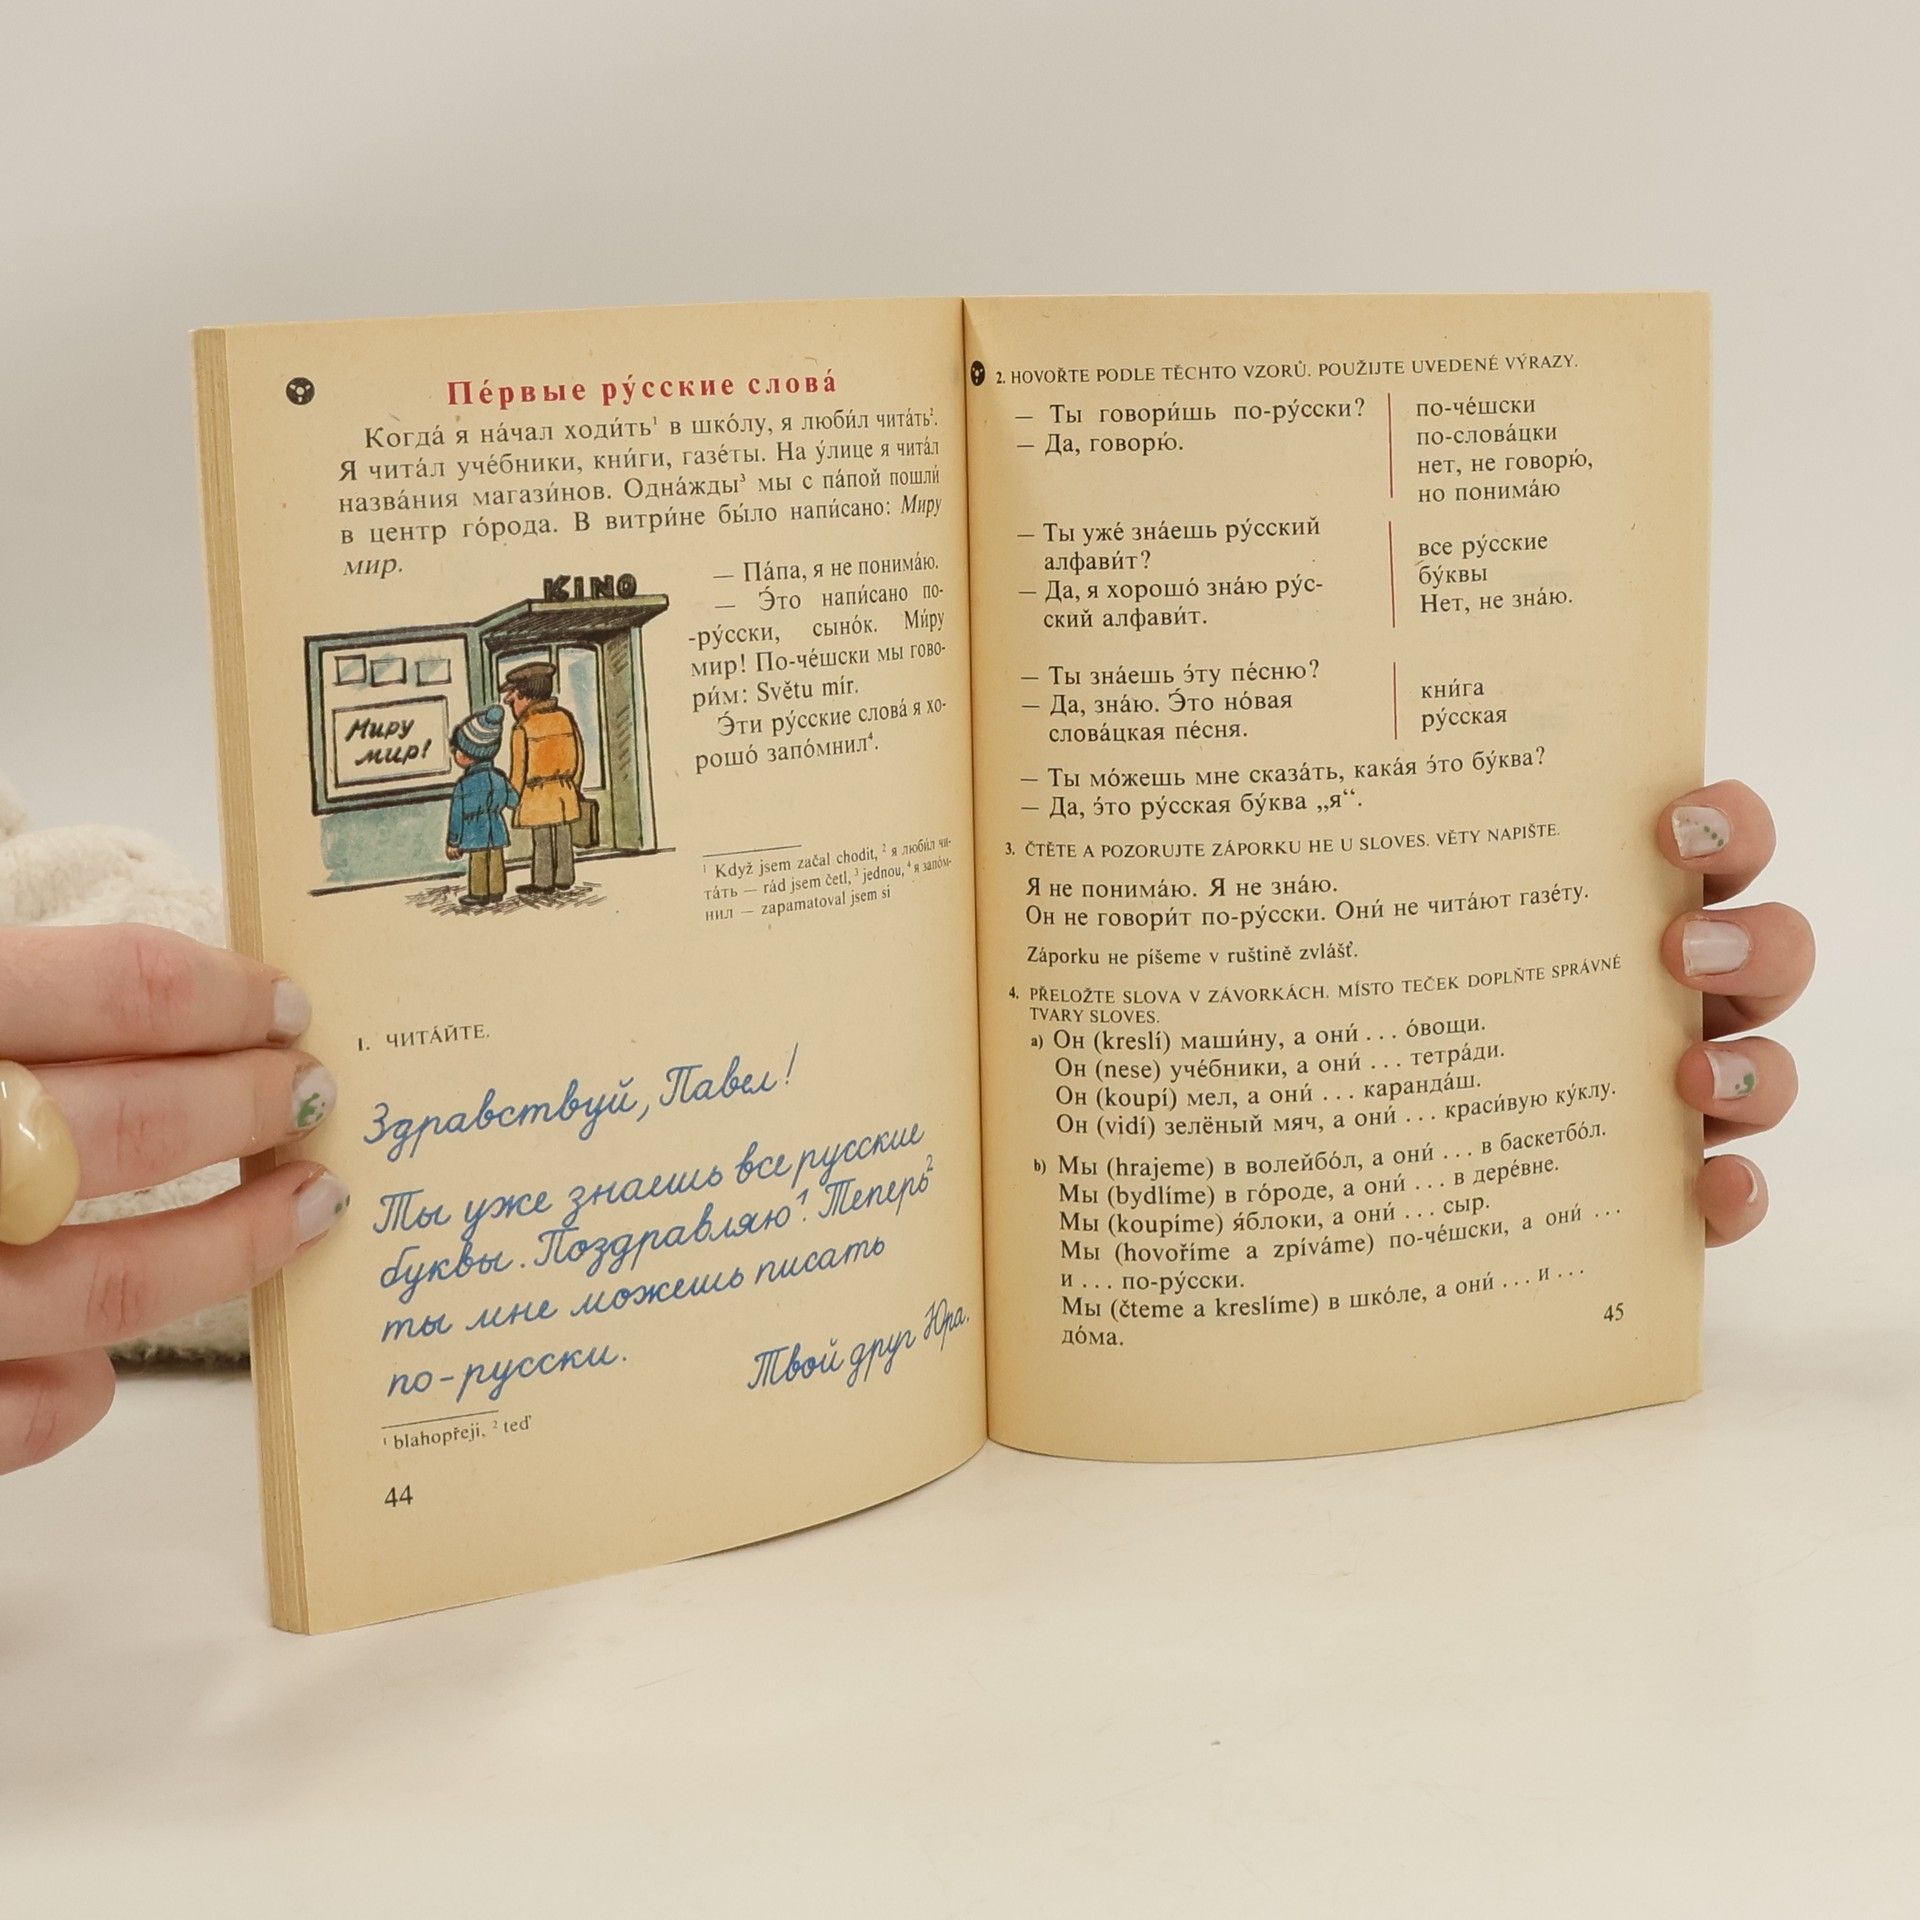 Пе́рвые ру́сские слова́
Когда́ я на́чал ходи́ть¹ в шко́лу, я люби́л чита́ть².
Я чита́л уче́бники, кни́ги, газе́ты. На у́лице я чита́л
назва́ния магази́нов. Одна́жды³ мы с па́пой пошли́
в центр го́рода. В витри́не бы́ло напи́сано: Миру
мир.
KINO
Миру
мир!
— Па́па, я не понима́ю.
— Э́то напи́сано по-
-ру́сски, сыно́к. Ми́ру
мир! По-че́шски мы гово-
ри́м: Světu mír.
Э́ти ру́сские слова́ я хо-
рошо́ запо́мнил⁴.
¹ Když jsem začal chodit, ² я люби́л чи-
та́ть — rád jsem četl, ³ jednou, ⁴ я запо́м-
нил — zapamatoval jsem si
1. ЧИТА́ЙТЕ.
Здравствуй, Павел!
Ты уже знаешь все русские
буквы. Поздравляю¹. Теперь²
ты мне можешь писать
по-русски.
Твой друг Юра.
¹ blahopřeji, ² teď
44
2. HOVOŘTE PODLE TĚCHTO VZORŮ. POUŽIJTE UVEDENÉ VÝRAZY.
— Ты говори́шь по-ру́сски?
— Да, говорю́.
по-че́шски
по-слова́цки
нет, не говорю́,
но понима́ю
— Ты уже́ зна́ешь ру́сский
алфави́т?
— Да, я хорошо́ зна́ю ру́с-
ский алфави́т.
все ру́сские
бу́квы
Нет, не зна́ю.
— Ты зна́ешь э́ту пе́сню?
— Да, зна́ю. Э́то но́вая
слова́цкая пе́сня.
кни́га
ру́сская
— Ты мо́жешь мне сказа́ть, кака́я э́то бу́ква?
— Да, э́то ру́сская бу́ква „я“.
3. ČTĚTE A POZORUJTE ZÁPORKU НЕ U SLOVES. VĚTY NAPIŠTE.
Я не понима́ю. Я не зна́ю.
Он не говори́т по-ру́сски. Они́ не чита́ют газе́ту.
Záporku не píšeme v ruštině zvlášť.
4. PŘELOŽTE SLOVA V ZÁVORKÁCH. MÍSTO TEČEK DOPLŇTE SPRÁVNÉ
TVARY SLOVES.
a) Он (kreslí) маши́ну, а они́ . . . о́вощи.
Он (nese) уче́бники, а они́ . . . тетра́ди.
Он (koupí) мел, а они́ . . . каранда́ш.
Он (vidí) зелёный мяч, а они́ . . . краси́вую ку́клу.
b) Мы (hrajeme) в волейбо́л, а они́ . . . в баскетбо́л.
Мы (bydlíme) в го́роде, а они́ . . . в дере́вне.
Мы (koupíme) я́блоки, а они́ . . . сыр.
Мы (hovoříme a zpíváme) по-че́шски, а они́ . . .
и . . . по-ру́сски.
Мы (čteme a kreslíme) в шко́ле, а они́ . . . и . . .
до́ма.
45